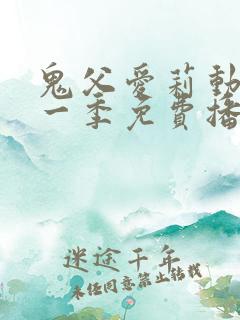 鬼父愛莉動
一季免費播
迷途千年
未经同意禁止转载